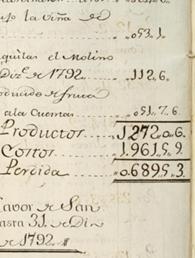 to la Viña de
053.1.
quilas el Molino
Diz.e de 1792 112.6.
oducido de fruca
a la Cuentas 051.7.6.
Productos 1272.0.6.
Costos 1.961.5.9.
Perdida 0.689.5.3.
favor de San
hasta 31 de Diz
de 1792